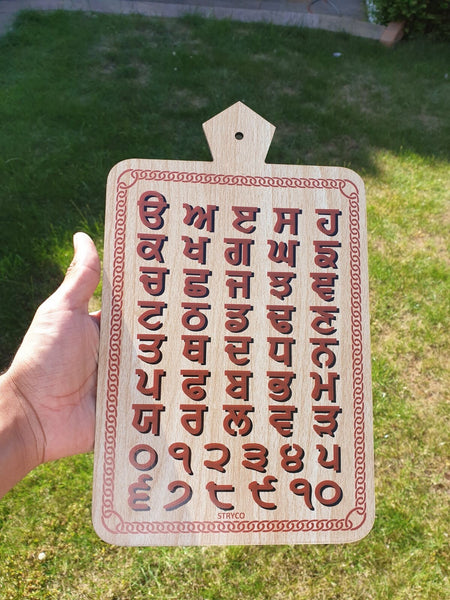 ੳ ਅ ੲ ਸ ਹ
ਕ ਖ ਗ ਘ ਙ
ਚ ਛ ਜ ਝ ਞ
ਟ ਠ ਡ ਢ ਣ
ਤ ਥ ਦ ਧ ਨ
ਪ ਫ ਬ ਭ ਮ
ਯ ਰ ਲ ਵ ੜ
੦ ੧ ੨ ੩ ੪ ੫
੬ ੭ ੮ ੯ ੧੦
STRYCO